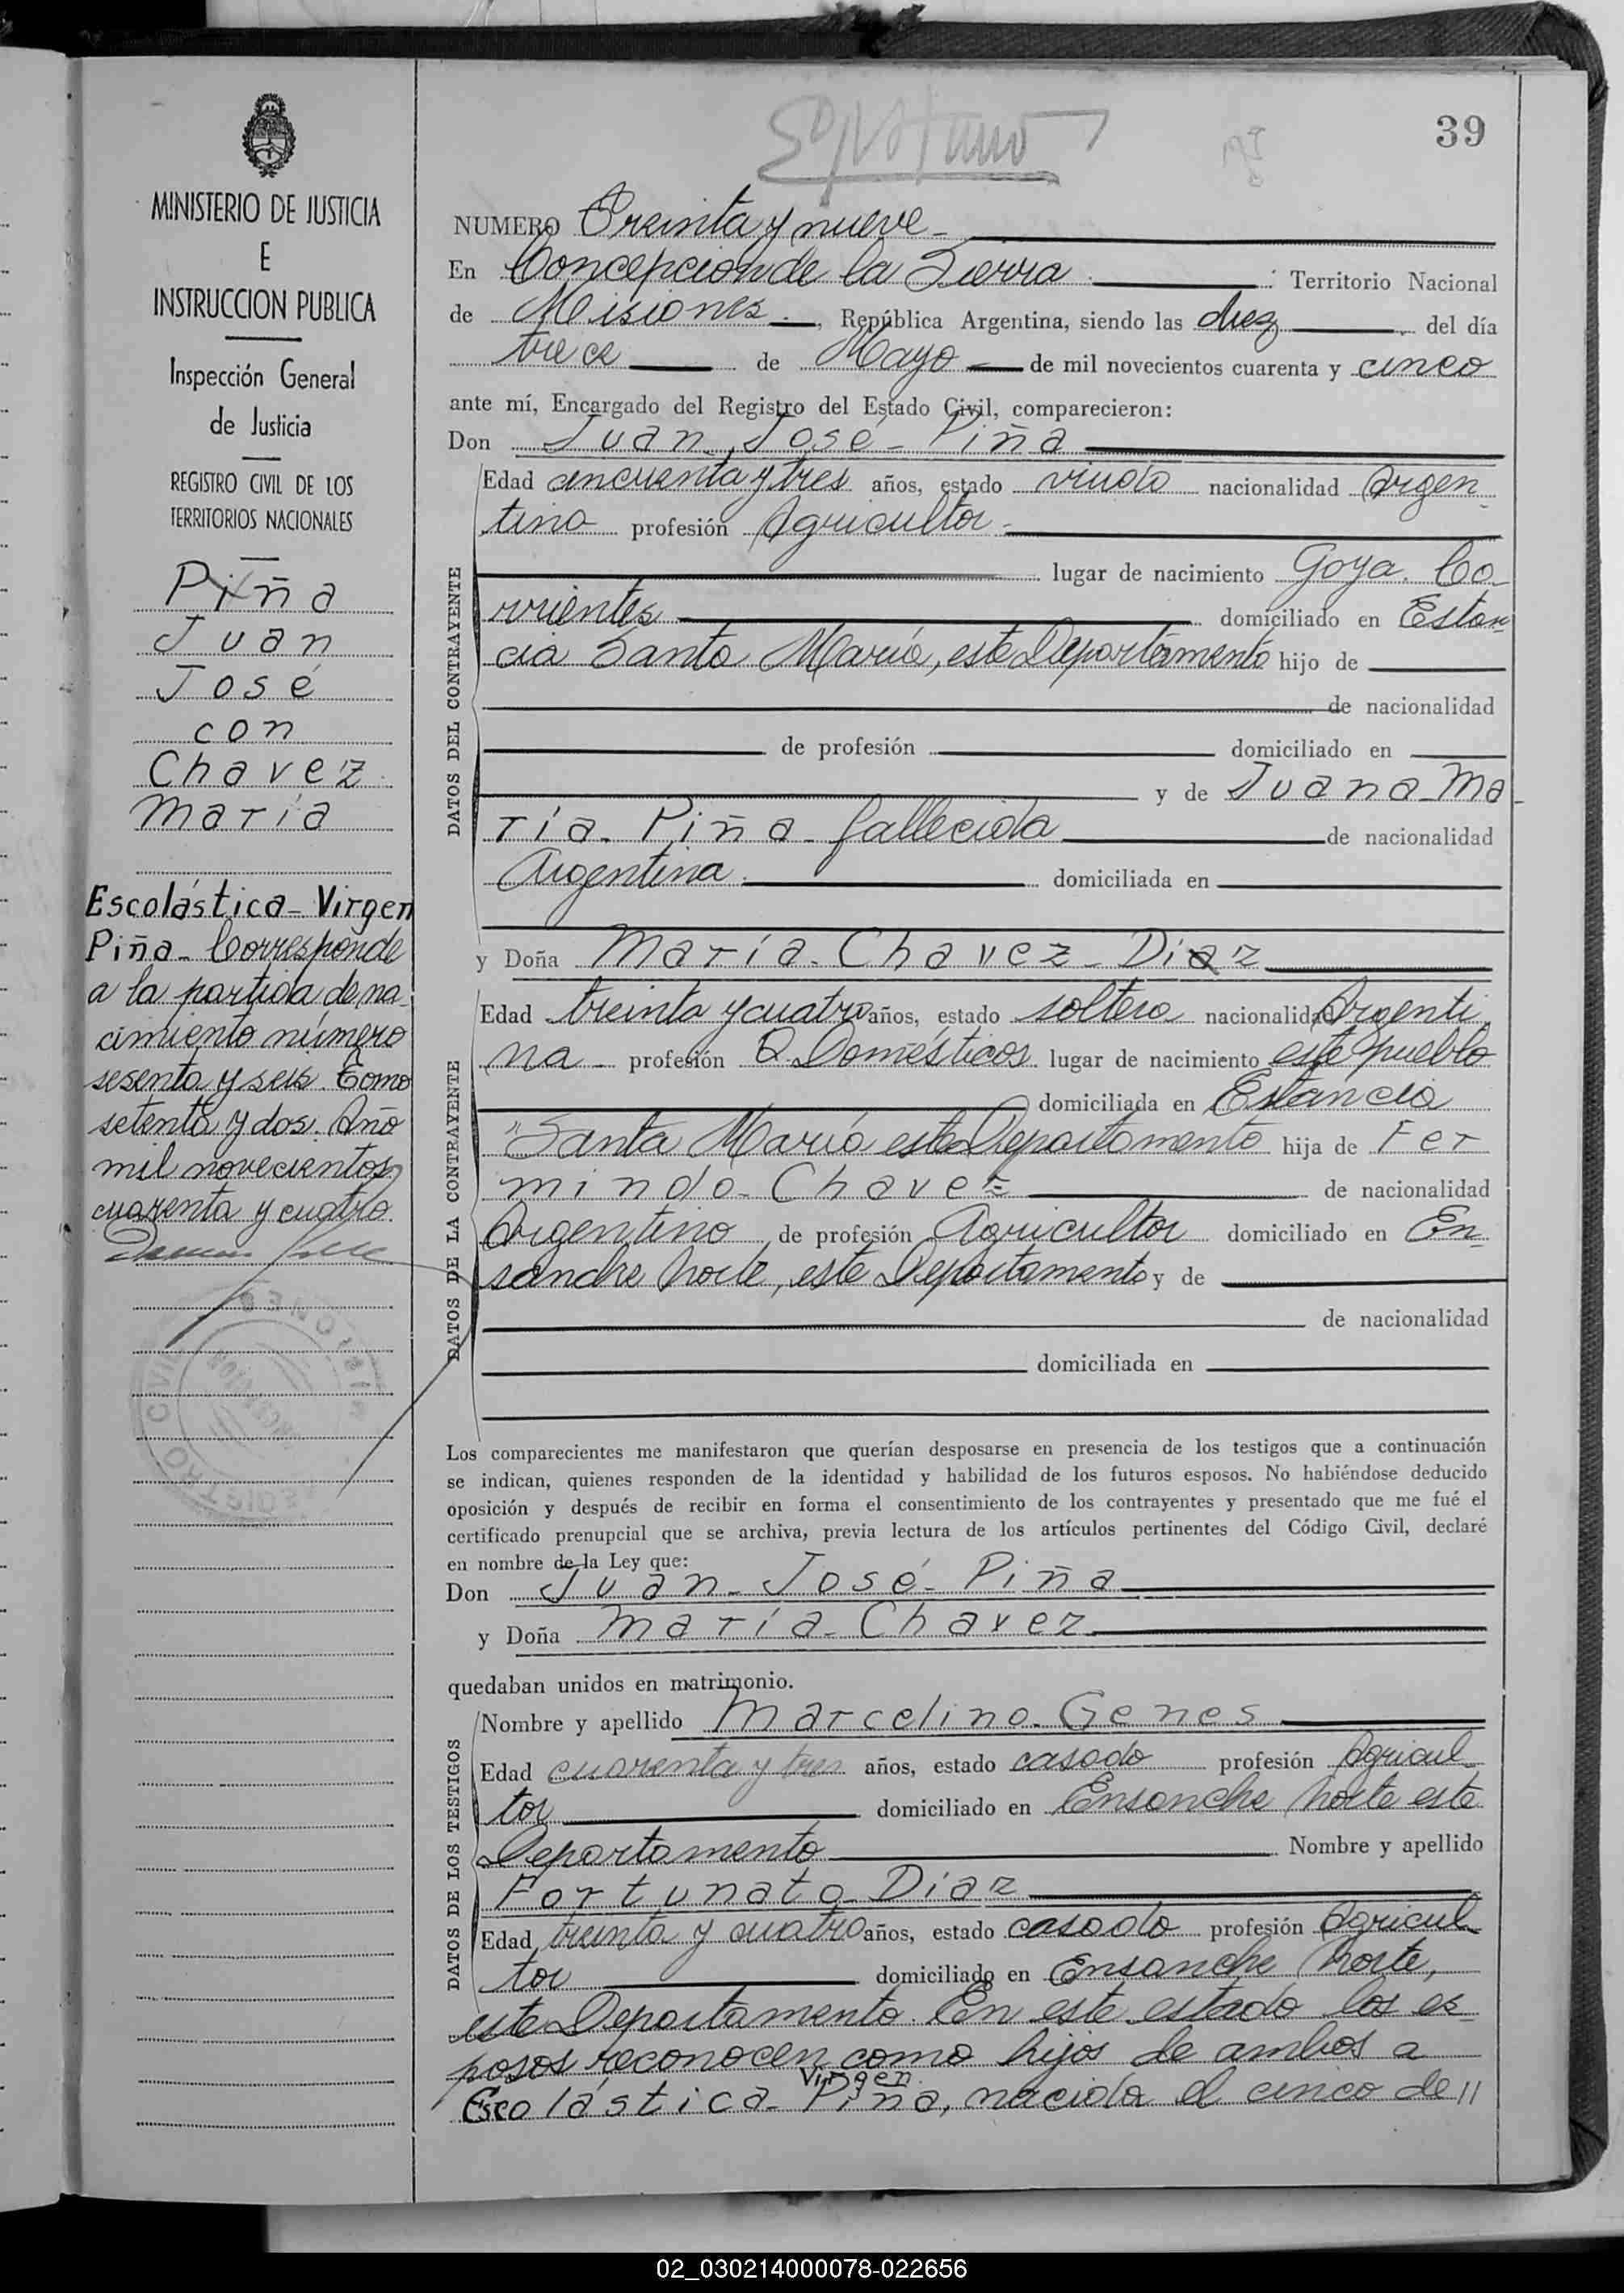 39
MINISTERIO DE JUSTICIA
E
INSTRUCCION PUBLICA
Inspección General
de Justicia
REGISTRO CIVIL DE LOS
TERRITORIOS NACIONALES
Piña
Juan
José
con
Chavez
María
Escolástica - Virgen
Piña - Corresponde
a la partida de na-
cimiento número
sesenta y seis. Tomo
setenta y dos. Año
mil novecientos
cuarenta y cuatro.
NUMERO Treinta y nueve -
En Concepcion de la Sierra : Territorio Nacional
de Misiones - , República Argentina, siendo las diez del día
trece de Mayo de mil novecientos cuarenta y cinco
ante mí, Encargado del Registro del Estado Civil, comparecieron:
Don Juan José - Piña
DATOS DEL CONTRAYENTE
Edad cincuenta y tres años, estado viudo nacionalidad Argen-
tino profesión Agricultor -
lugar de nacimiento Goya. Co-
rrientes domiciliado en Estan-
cia Santa María, este Departamento hijo de
de nacionalidad
de profesión domiciliado en
y de Juana - Ma-
ría - Piña - fallecida de nacionalidad
Argentina. domiciliada en
y Doña María - Chavez - Diaz
DATOS DE LA CONTRAYENTE
Edad treinta y cuatro años, estado soltera nacionalidad Argenti-
na - profesión Q. Domésticos lugar de nacimiento este pueblo
domiciliada en Estancia
"Santa María este Departamento hija de Fer
mindo - Chavez de nacionalidad
Argentino de profesión Agricultor domiciliado en En-
sanche Norte, este Departamento y de
de nacionalidad
domiciliada en
Los comparecientes me manifestaron que querían desposarse en presencia de los testigos que a continuación
se indican, quienes responden de la identidad y habilidad de los futuros esposos. No habiéndose deducido
oposición y después de recibir en forma el consentimiento de los contrayentes y presentado que me fué el
certificado prenupcial que se archiva, previa lectura de los artículos pertinentes del Código Civil, declaré
en nombre de la Ley que:
Don Juan - José - Piña
y Doña María - Chavez
quedaban unidos en matrimonio.
DATOS DE LOS TESTIGOS
Nombre y apellido Marcelino - Genes
Edad cuarenta y tres años, estado casado profesión Agricul-
tor domiciliado en Ensanche Norte este
Departamento Nombre y apellido
Fortunato - Diaz
Edad treinta y cuatro años, estado casado profesión Agricul-
tor domiciliado en Ensanche Norte,
este Departamento. En este estado los es-
posos reconocen como hijos de ambos a
Virgen
Escolástica - Piña, nacida el cinco de //
02_030214000078-022656